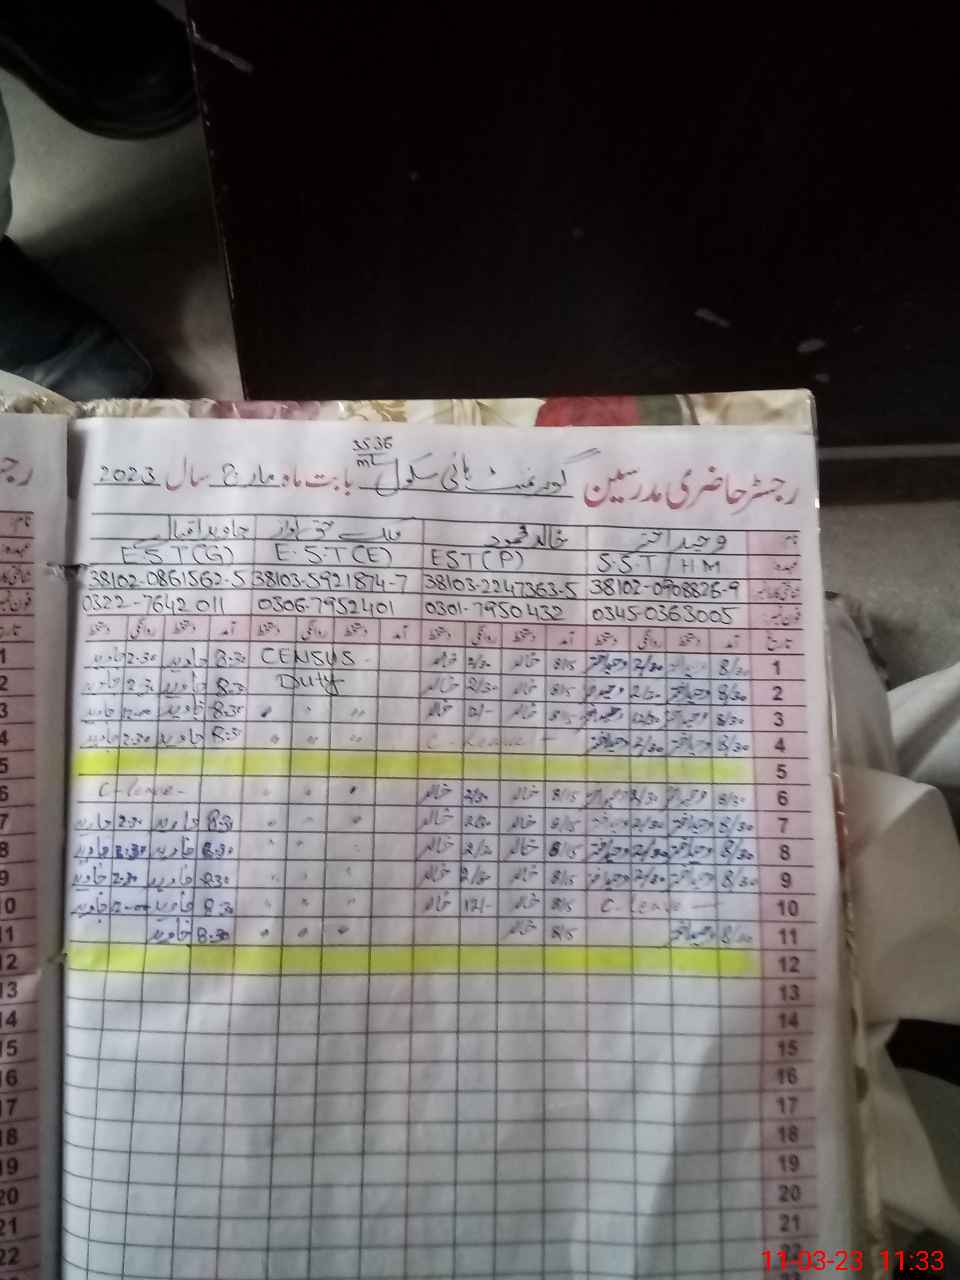 35.36
ML
رجسٹر حاضری مدرسین گورنمنٹ ہائی سکول بابت ماہ مارچ سال 2023
نام وحید اختر خالد محمود ملک حق نواز جاوید اقبال
عہدہ S.S.T / HM EST (P) E.S.T (E) E.S.T (G)
38102-0908826-9 38103-2247363-5 38103-5921874-7 38102-0861562-5
0345-0363005 0301-7950432 0306-7952401 0322-7642011
تاریخ آمد دستخط روانگی دستخط آمد دستخط روانگی دستخط آمد دستخط روانگی دستخط آمد دستخط روانگی دستخط
1 8/30 وحید اختر 2/30 وحید اختر 8/15 خالد 2/30 خالد CENSUS 8.30 جاوید 2.30 جاوید
2 8/30 وحید اختر 2/30 وحید اختر 8/15 خالد 2/30 خالد Duty 8.30 جاوید 2.30 جاوید
3 8/30 وحید اختر 12/30 وحید اختر 8/15 خالد 12/- خالد " " " 8.30 جاوید 12.00 جاوید
4 8/30 وحید اختر 2/30 وحید اختر C-Leave " " " 8.30 جاوید 2.30 جاوید
5
6 8/30 وحید اختر 2/30 وحید اختر 8/15 خالد 2/30 خالد " " " C-leave-
7 8/30 وحید اختر 2/30 وحید اختر 8/15 خالد 2/30 خالد " " " 8.30 جاوید 2.30 جاوید
8 8/30 وحید اختر 2/30 وحید اختر 8/15 خالد 2/30 خالد " " " 8.30 جاوید 2.30 جاوید
9 8/30 وحید اختر 2/30 وحید اختر 8/15 خالد 2/30 خالد " " " 8.30 جاوید 2.30 جاوید
10 C-Leave 8/15 خالد 12/- خالد " " " 8.30 جاوید 12.00 جاوید
11 8/30 وحید اختر 8/15 خالد " " " 8.30 جاوید
12
13
14
15
16
17
18
19
20
21
22
11-03-23 11:33